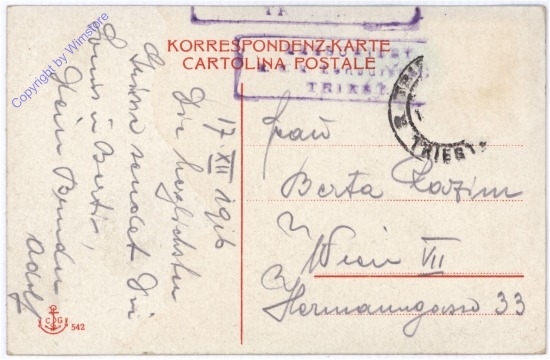 TRI
KORRESPONDENZ-KARTE
CARTOLINA POSTALE
TRIEST
TRIEST
Copyright by Wimstore
17 XII 1916
Die herzlichsten
Grüsse sendet Dir
Louis u Berti,
Dein Bruder
Adolf
Frau
Berta
Wien VII
Hermanngasse 33
C G
542